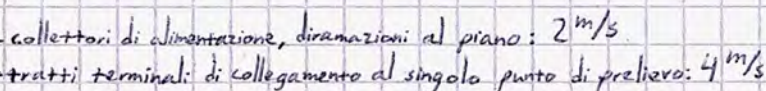 - collettori di alimentazione, diramazioni al piano: 2 m/s
- tratti terminali di collegamento al singolo punto di prelievo: 4 m/s